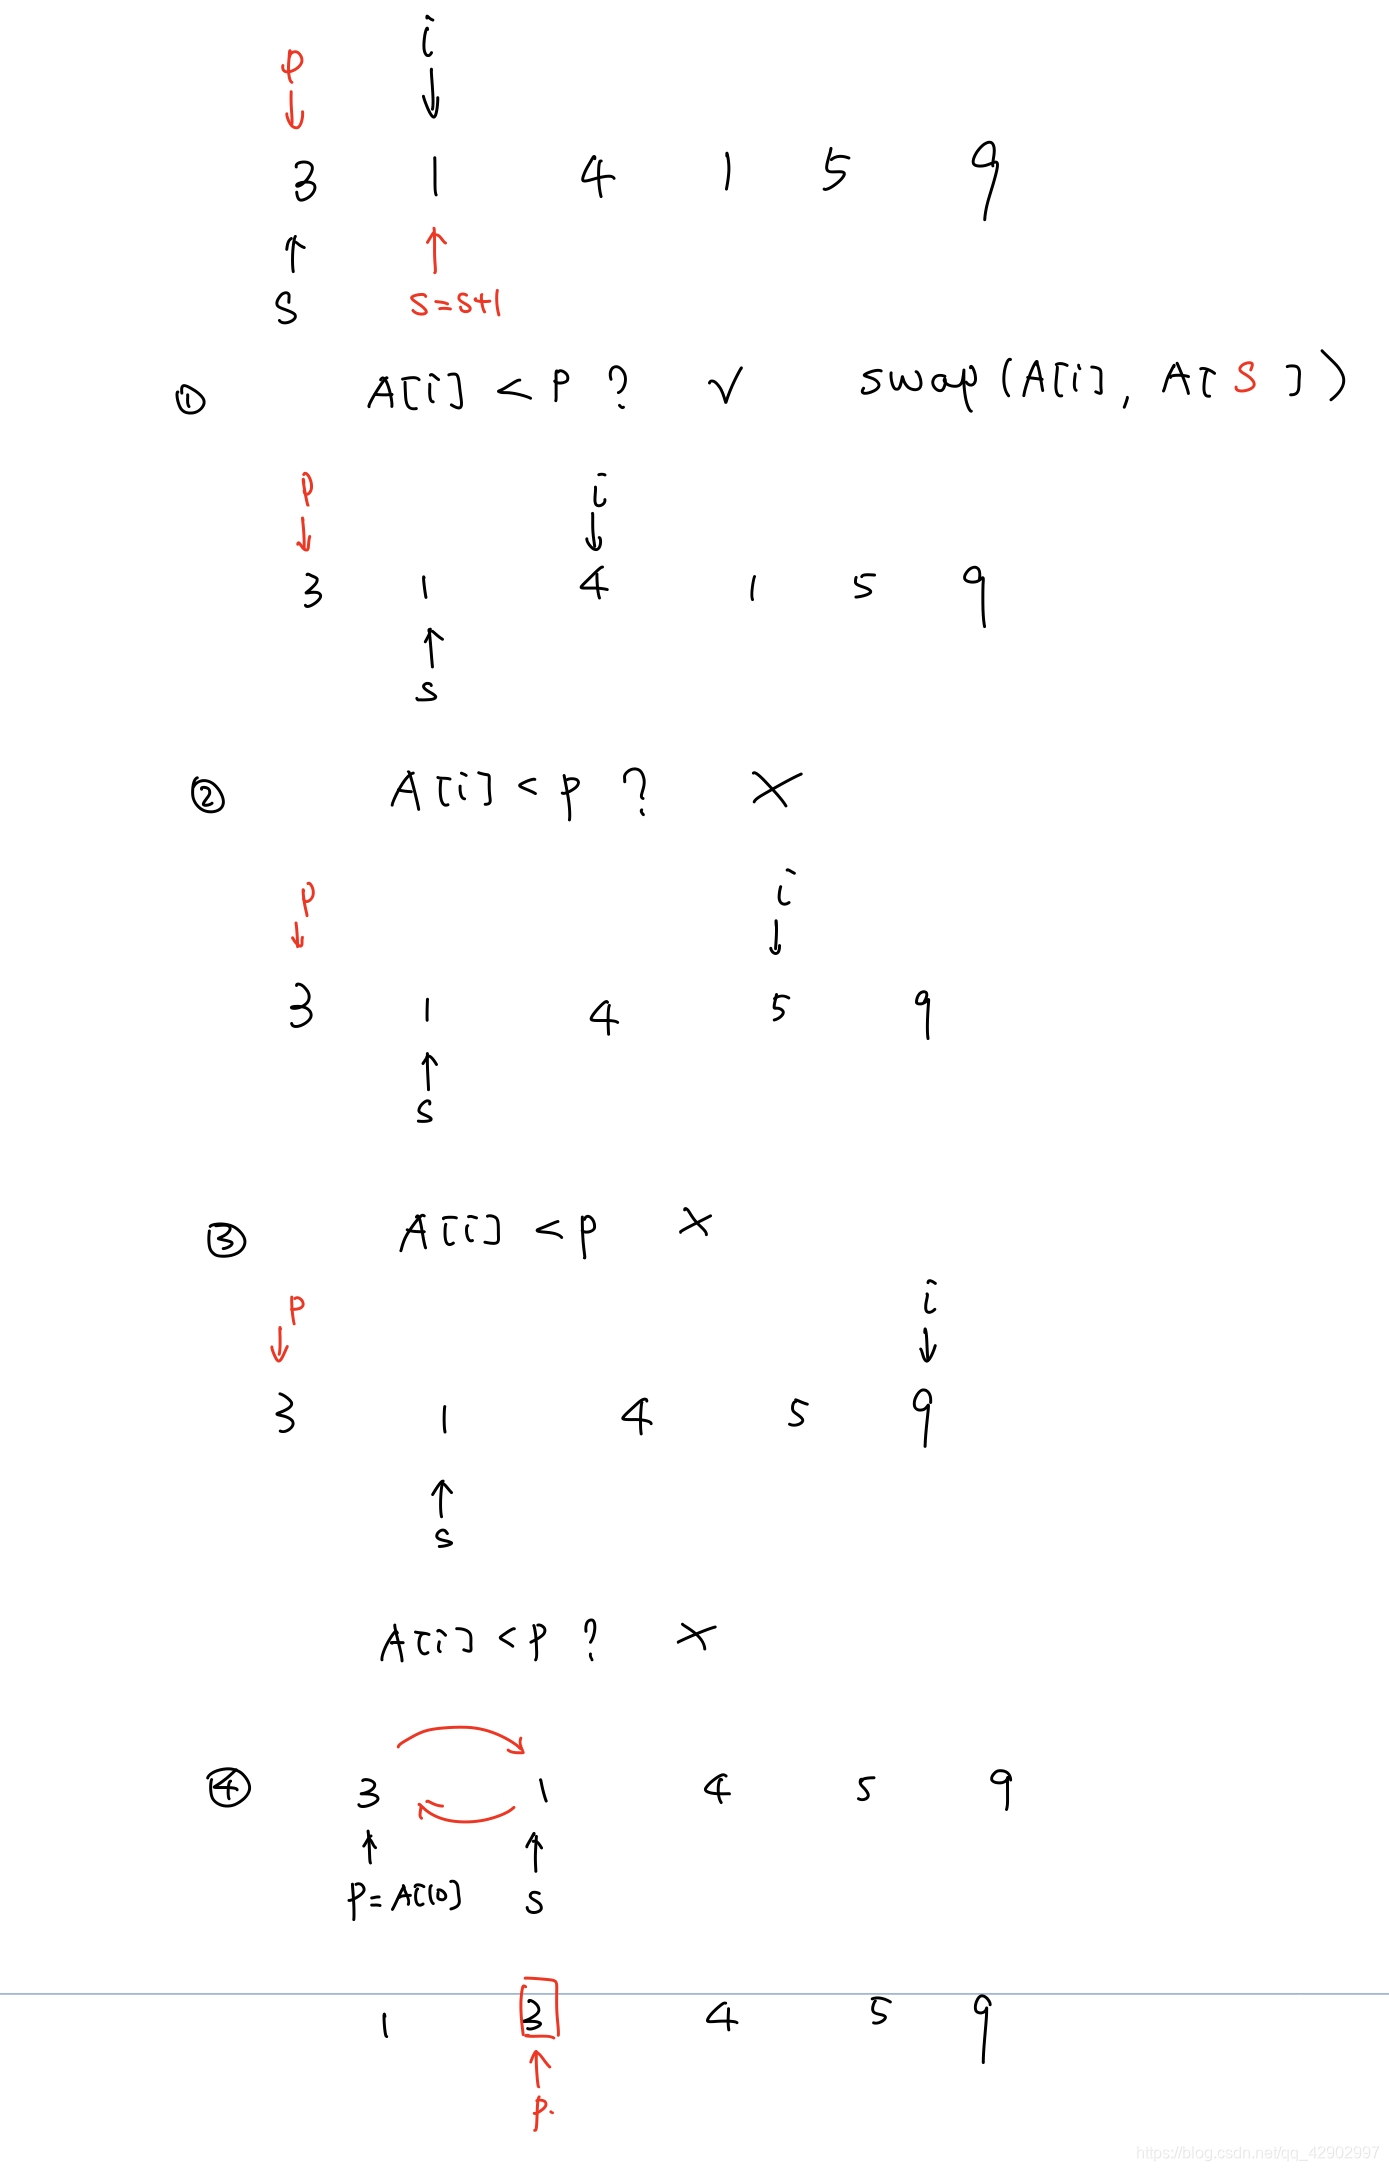 i
p
3 1 4 1 5 9
S s=s+1
① A[i] < P ? √ swap(A[i], A[S])
p i
3 1 4 1 5 9
s
② A[i] < p ? ×
p i
3 1 4 5 9
s
③ A[i] < p ×
p i
3 1 4 5 9
s
A[i] < p ? ×
④ 3 1 4 5 9
P = A[0] s
1 3 4 5 9
p.
https://blog.csdn.net/qq_42902997